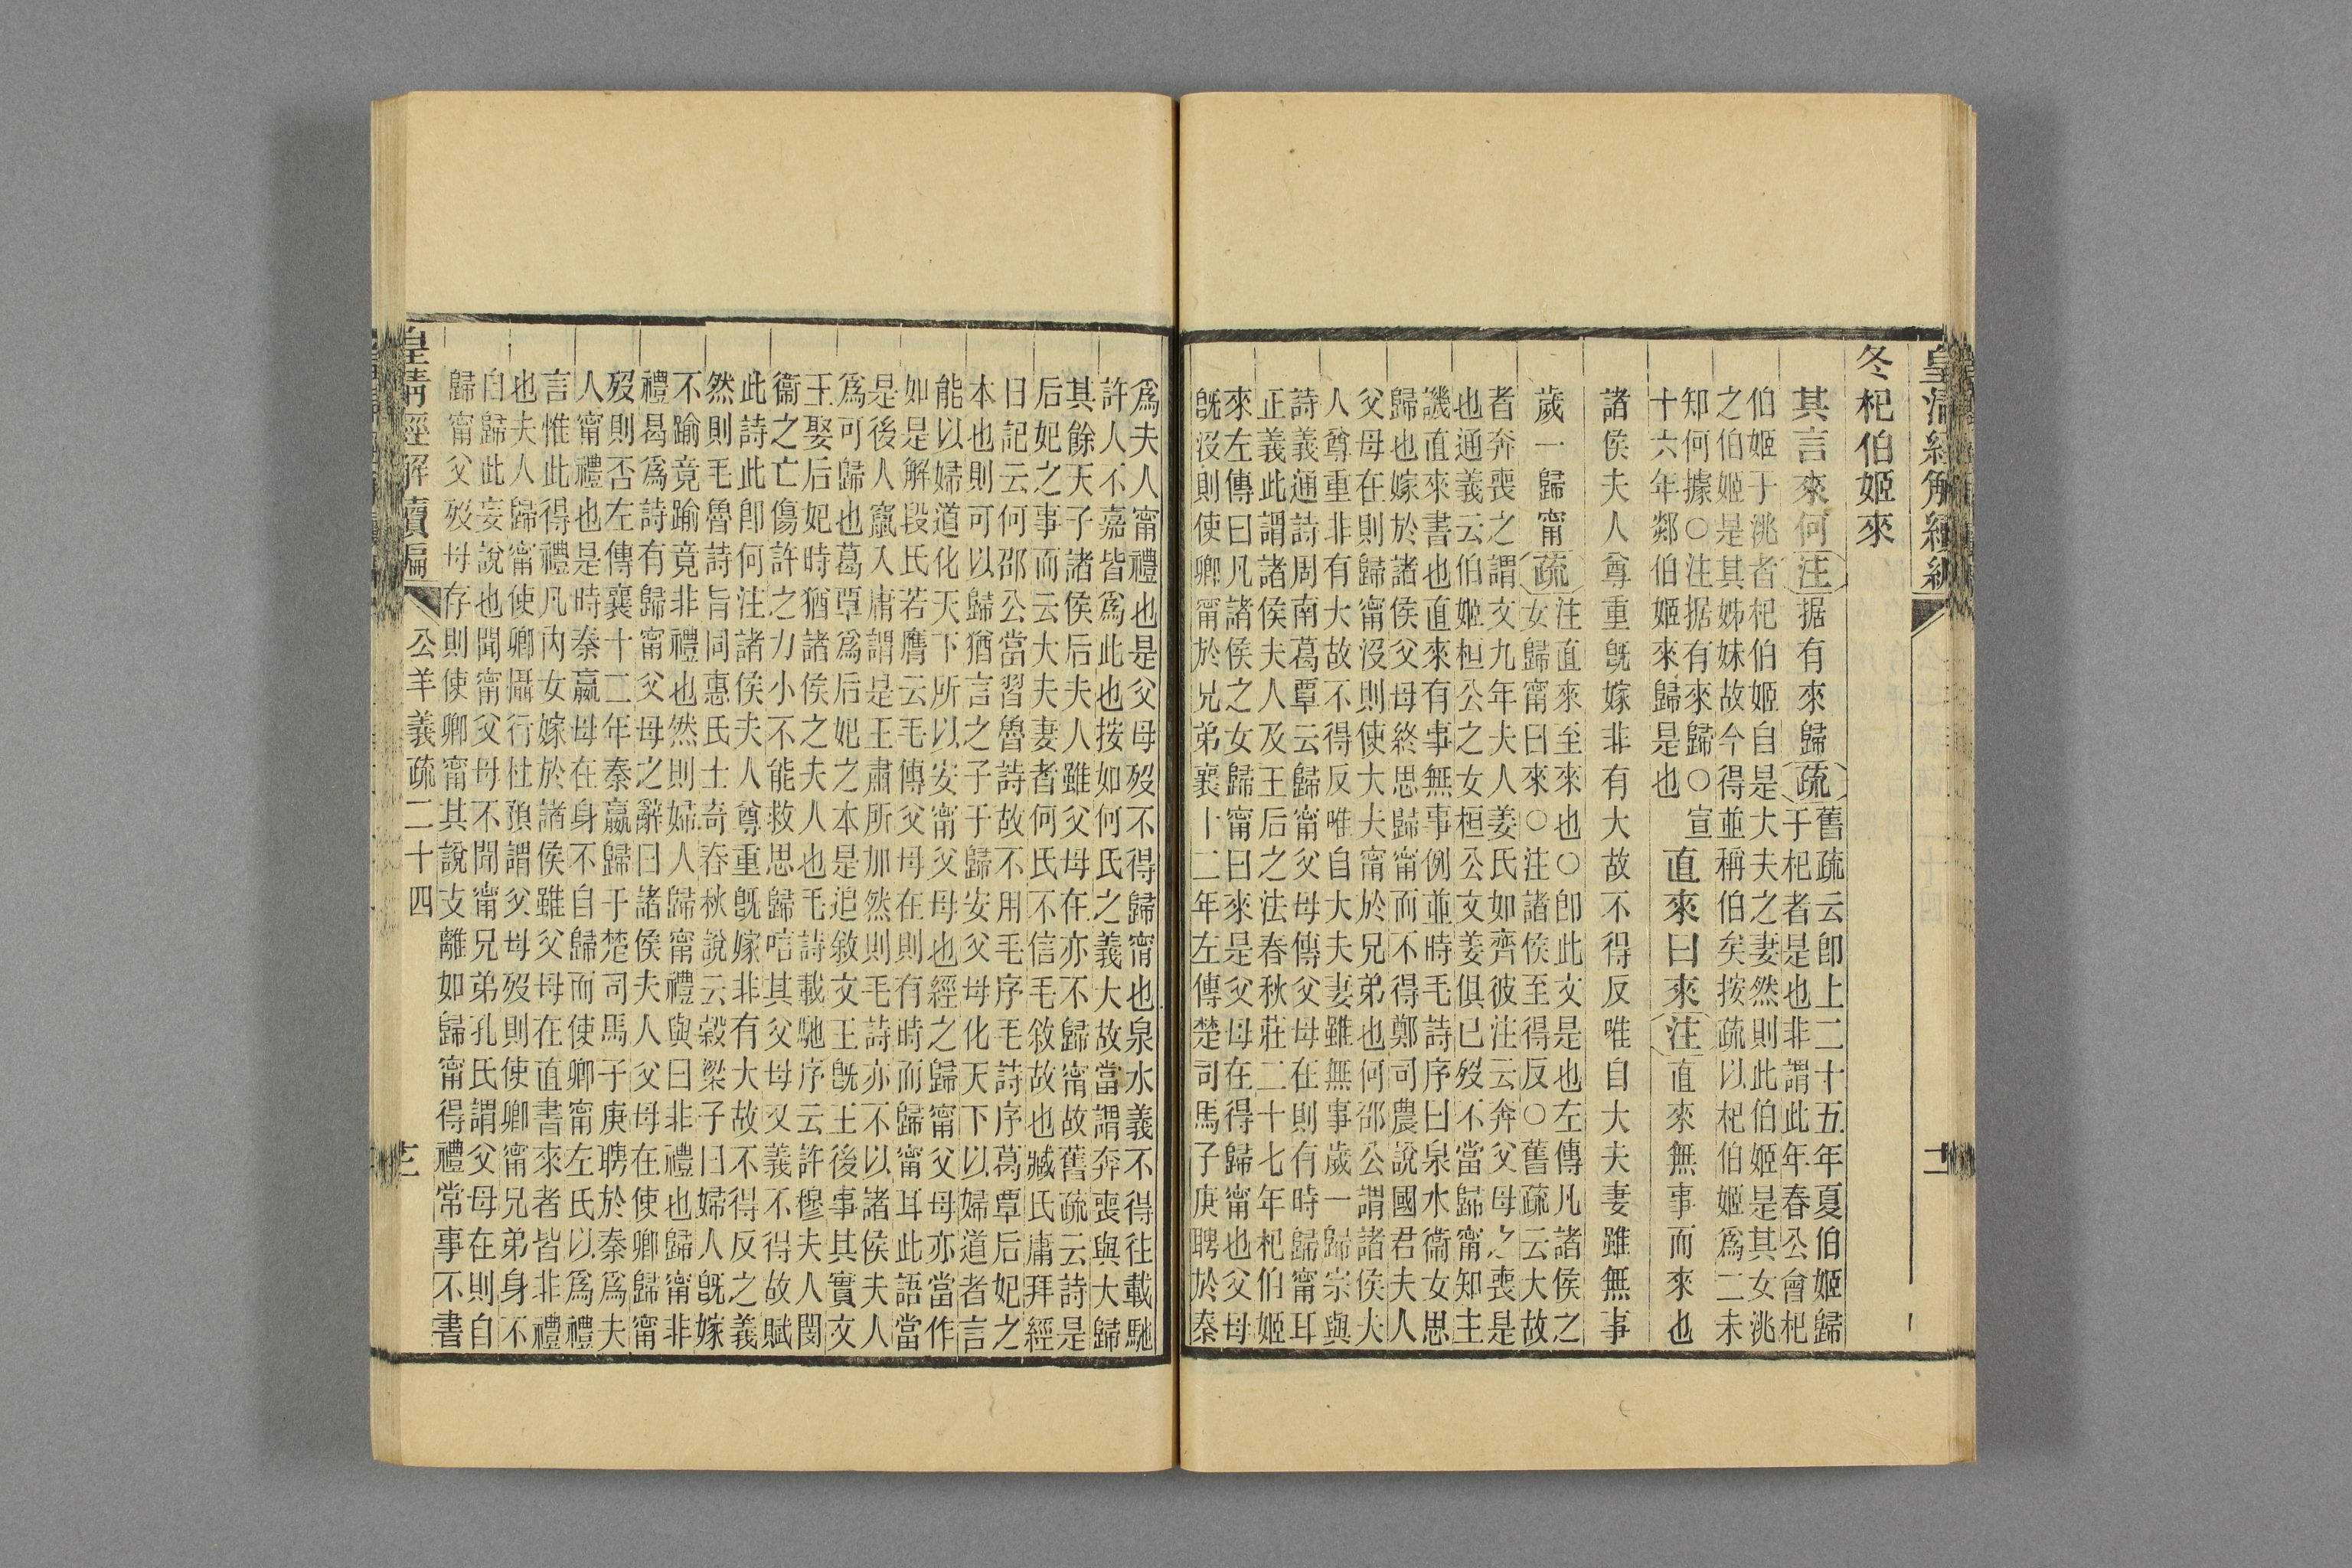 皇清經解續編
二
冬杞伯姬來
其言來何注据有來歸疏舊疏云卽上二十五年夏伯姬歸
于杞者是也非謂此年春公會杞
伯姬于洮者杞伯姬自是大夫之妻然則此伯姬是其女洮
之伯姬是其姊妹故今得並稱伯矣按疏以杞伯姬爲二未
知何據○注据有來歸○宣
十六年郯伯姬來歸是也
直來曰來注直來無事而來也
諸侯夫人尊重旣嫁非有大故不得反唯自大夫妻雖無事
歲一歸甯疏注直來至來也○卽此文是也左傳凡諸侯之
女歸甯曰來○注諸侯至得反○舊疏云大故
者奔喪之謂文九年夫人姜氏如齊彼注云奔父母之喪是
也通義云伯姬桓公之女桓公文姜俱已歿不當歸甯知主
譏直來書也直來有事無事例並時毛詩序曰泉水衞女思
歸也嫁於諸侯父母終思歸甯而不得鄭司農說國君夫人
父母在則歸甯沒則使大夫甯於兄弟也何邵公謂諸侯大
人尊重非有大故不得反唯自大夫妻雖無事歲一歸宗與
詩義通詩周南葛覃云歸甯父母傳父母在則有時歸甯耳
正義此謂諸侯夫人及王后之法春秋莊二十七年杞伯姬
來左傳曰凡諸侯之女歸甯曰來是父母在得歸甯也父母
旣沒則使卿甯於兄弟襄十二年左傳楚司馬子庚聘於秦
爲夫人甯禮也是父母歿不得歸甯也泉水義不得往載馳
許人不嘉皆爲此也按如何氏之義大故當謂奔喪與大歸
其餘天子諸侯后夫人雖父母在亦不歸甯故舊疏云詩是
后妃之事而云大夫妻者何氏不信毛敘故也臧氏庸拜經
日記云何邵公當習魯詩故不用毛序毛詩序葛覃后妃之
本也則可以歸猶言之子于歸安父母化天下以婦道者言
能以婦道化天下所以安甯父母也經之歸甯父母亦當作
如是解段氏若膺云毛傳父母在則有時而歸甯耳此語當
是後人竄入庸謂是王肅所加然則毛詩亦不以諸侯夫人
爲可歸也葛覃爲后妃之本是追敘文王旣王後事其實文
王娶后妃時猶諸侯之夫人也毛詩載馳序云許穆夫人閔
衞之亡傷許之力小不能救思歸唁其父母又義不得故賦
此詩此卽何注諸侯夫人尊重旣嫁非有大故不得反之義
然則毛魯詩旨同惠氏士奇春秋說云榖梁子曰婦人旣嫁
不踰竟踰竟非禮也然則婦人歸甯禮與曰非禮也歸甯非
禮曷爲詩有歸甯父母之辭曰諸侯夫人父母在使卿歸甯
歿則否左傳襄十二年秦嬴歸于楚司馬子庚聘於秦爲夫
人甯禮也是時秦嬴母在身不自歸而使卿甯左氏以爲禮
言惟此得禮凡內女嫁於諸侯雖父母在直書來者皆非禮
也夫人歸甯使卿攝行杜預謂父母歿則使卿甯兄弟身不
自歸此妄說也聞甯父母不聞甯兄弟孔氏謂父母在則自
歸甯父歿母存則使卿甯其說支離如歸甯得禮常事不書
皇清經解續編
公羊義疏二十四
三